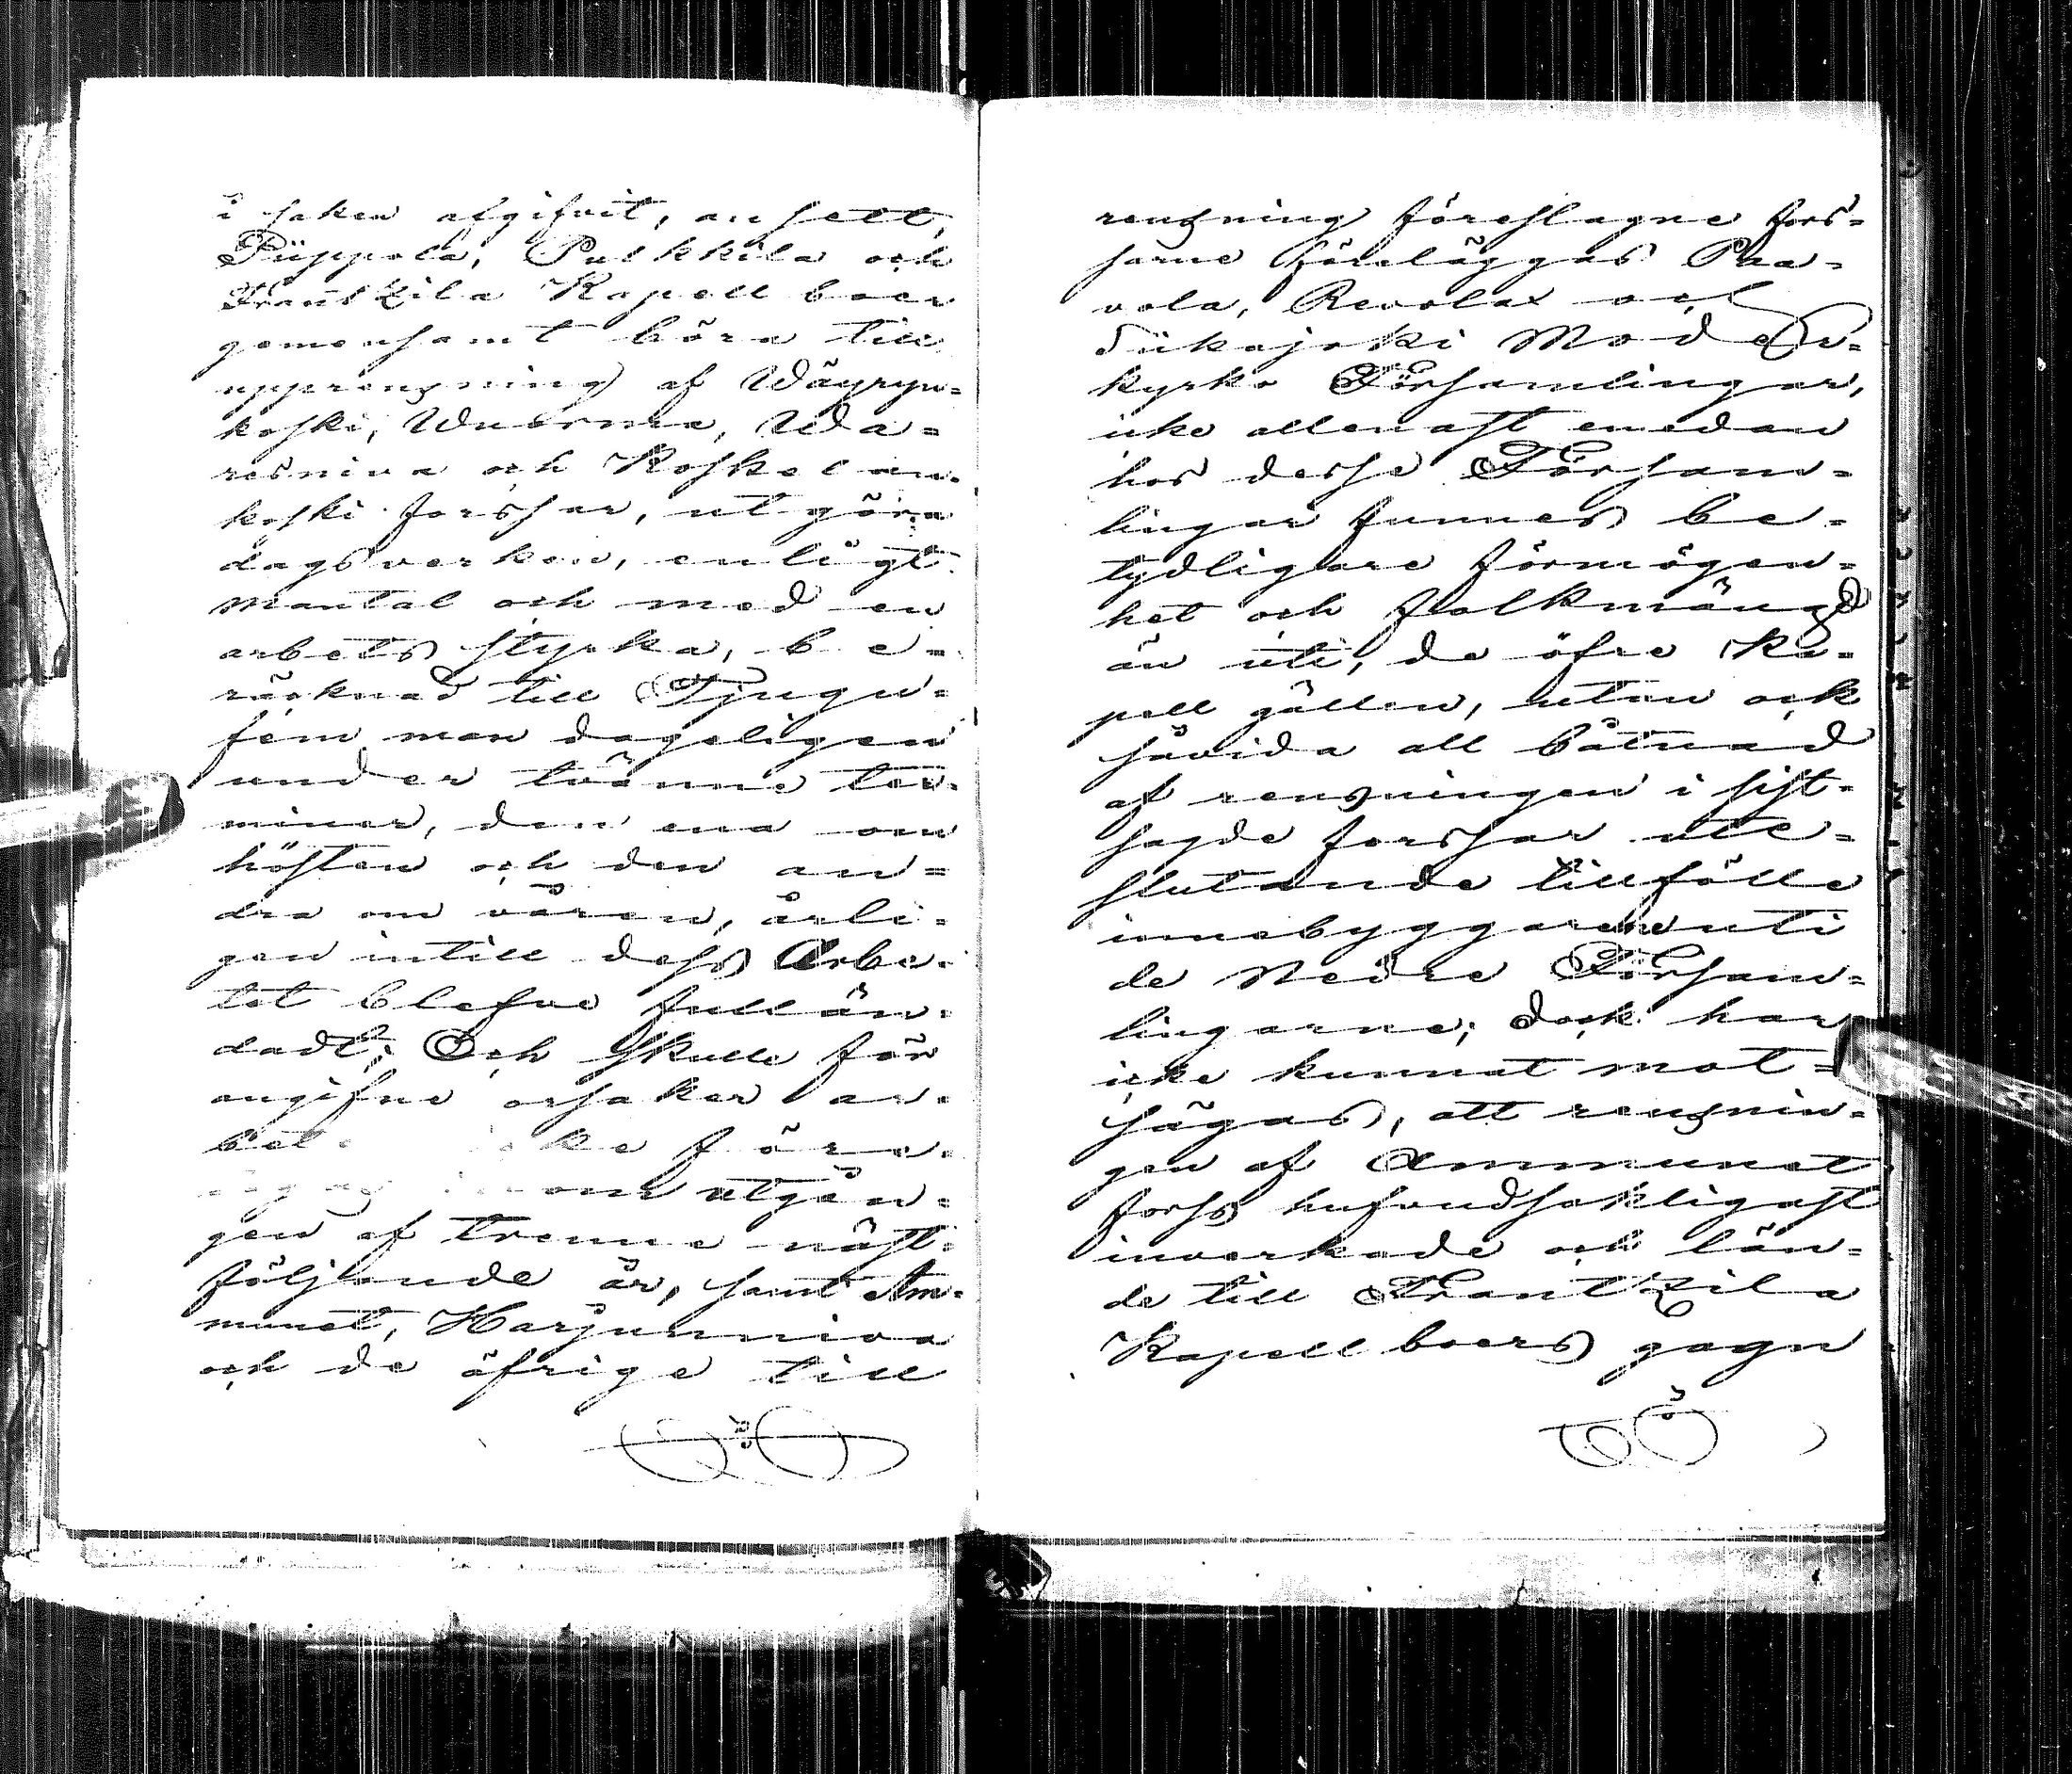 i saken afgifvit, ansett,
Piippola, Pulkkila och
Frantzila Kapellboer
gemensamt böra till
upprensning af Wäyryn=
koski, Wuorma, Wa=
resniva och Koskelan=
koski forssar, utgöra
dagsverken, enligt
mantal och med en
arbets styrka, be=
räcknad till Tjugu=
fem man dageligen
under tvänne ter=
miner, den ena om
hösten och den an=
dra om våren, årli=
gen intill dess Arbe=
tet blefve fullän=
dadt; Och skulle för
angifne orsaker ar=
bet= före=
om utgån=
gen af trenne näst=
följande år, samt Am=
munet, Harjunniva
och de öfrige till
rensning föreslagne fors=
sarne föreläggas Paa=
vola, Revolax och
Siikajoki Moder=
kyrko Församlingar,
icke allenast emedan
hos desse Försam=
lingar funnes be=
tydligare förmögen=
het och folkmängd
än uti, de öfre Ka=
pell gällen, utan ock
såvida all båtnad
af rensningen i sist=
sagde forssar ute=
slutande tillfölle
innebyggarene uti
de Nedre Försam=
lingarne; dock har
icke kunnat mot=
sägas, att rensnin=
gen af Ammunet
forss hufvudsakligast
inverkade och län=
de till Frantzila
Kapellboers gagn